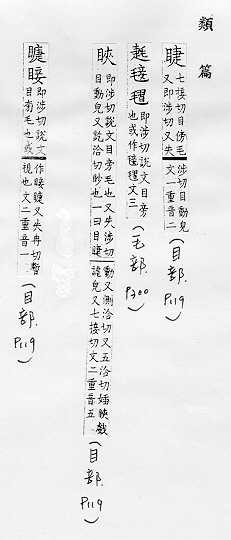 類篇
睫 七接切目傍毛又即涉切又失涉切目動皃文一重音二(目部.P119)
毽 即涉切說文目旁毛也或作文三(毛部.P300)
䀹 即涉切說文目旁毛也又失涉切目動皃又訖洽切眇也一曰目睫動又測洽切又五洽切䀹戲謔皃又七接切文二重音五.(目部.P119)
睫 即涉切說文目旁毛也或作又失冉切暫視也文二重音一.(目部.P119)